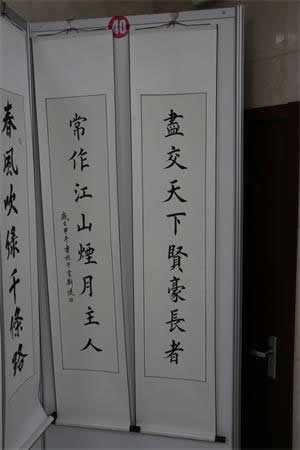 40
盡交天下賢豪長者
常作江山煙月主人
春風吹綠千條路